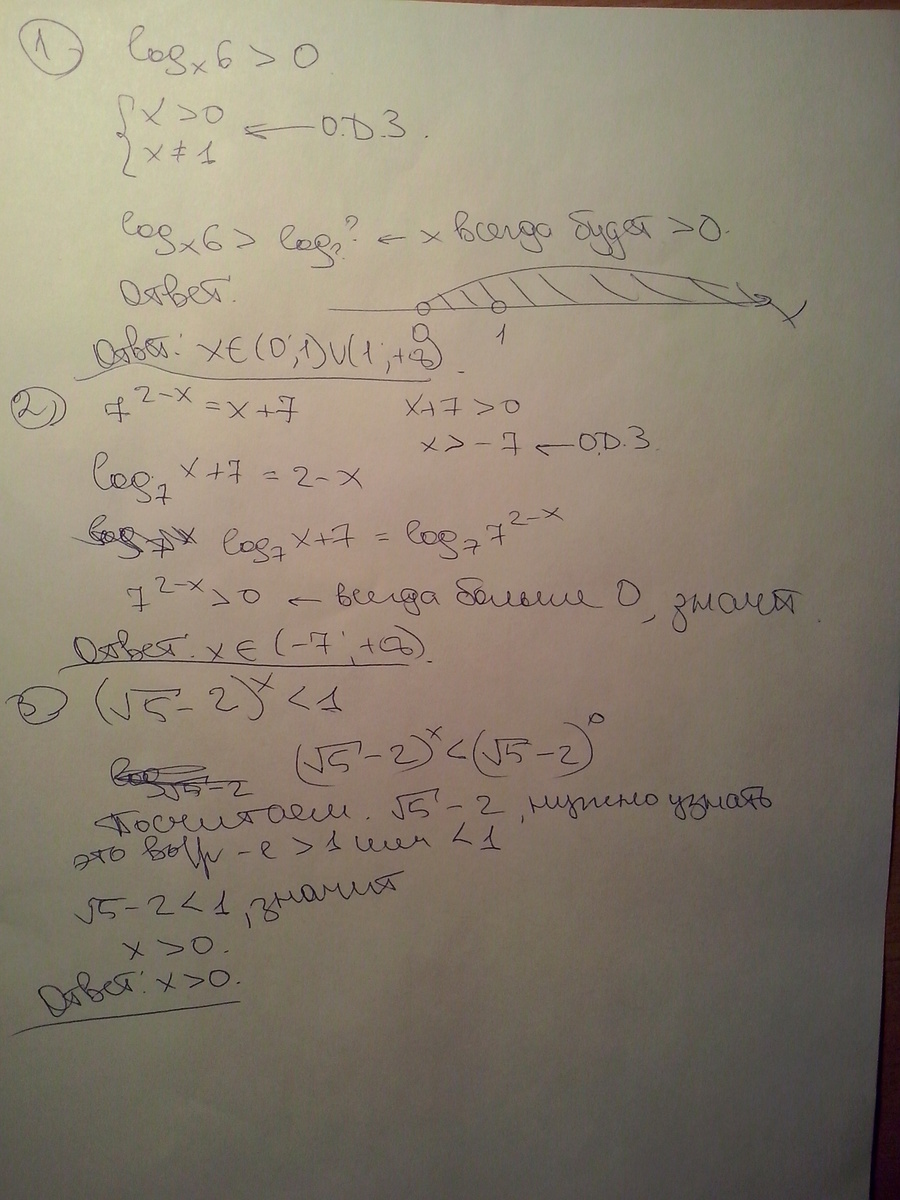 1 log_x 6 > 0
{ x > 0
{ x ≠ 1 ← О.Д.З.
log_x 6 > log_? ? ← x всегда будет > 0.
Ответ.
0 1 x
Ответ: x ∈ (0; 1) ∪ (1; +∞).
2) 7^{2-x} = x + 7 x + 7 > 0
x > -7 ← О.Д.З.
log_7 x+7 = 2 - x
log_7 x+7 = log_7 7^{2-x}
7^{2-x} > 0 ← всегда больше 0, значит
Ответ: x ∈ (-7; +∞).
3 (√5 - 2)^x < 1
(√5 - 2)^x < (√5 - 2)^0
Посчитаем. √5 - 2, нужно узнать
это выр-е > 1 или < 1
√5 - 2 < 1, значит
x > 0.
Ответ: x > 0.